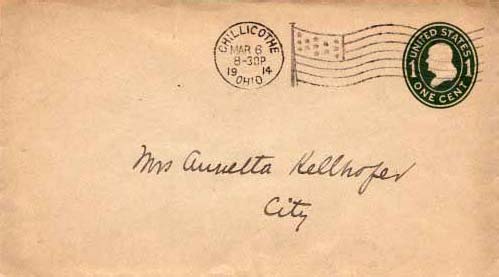 CHILLICOTHE
MAR 6
8-30P
1914
OHIO
UNITED STATES
1 1
ONE CENT
Mrs Annetta Kellhofer
City